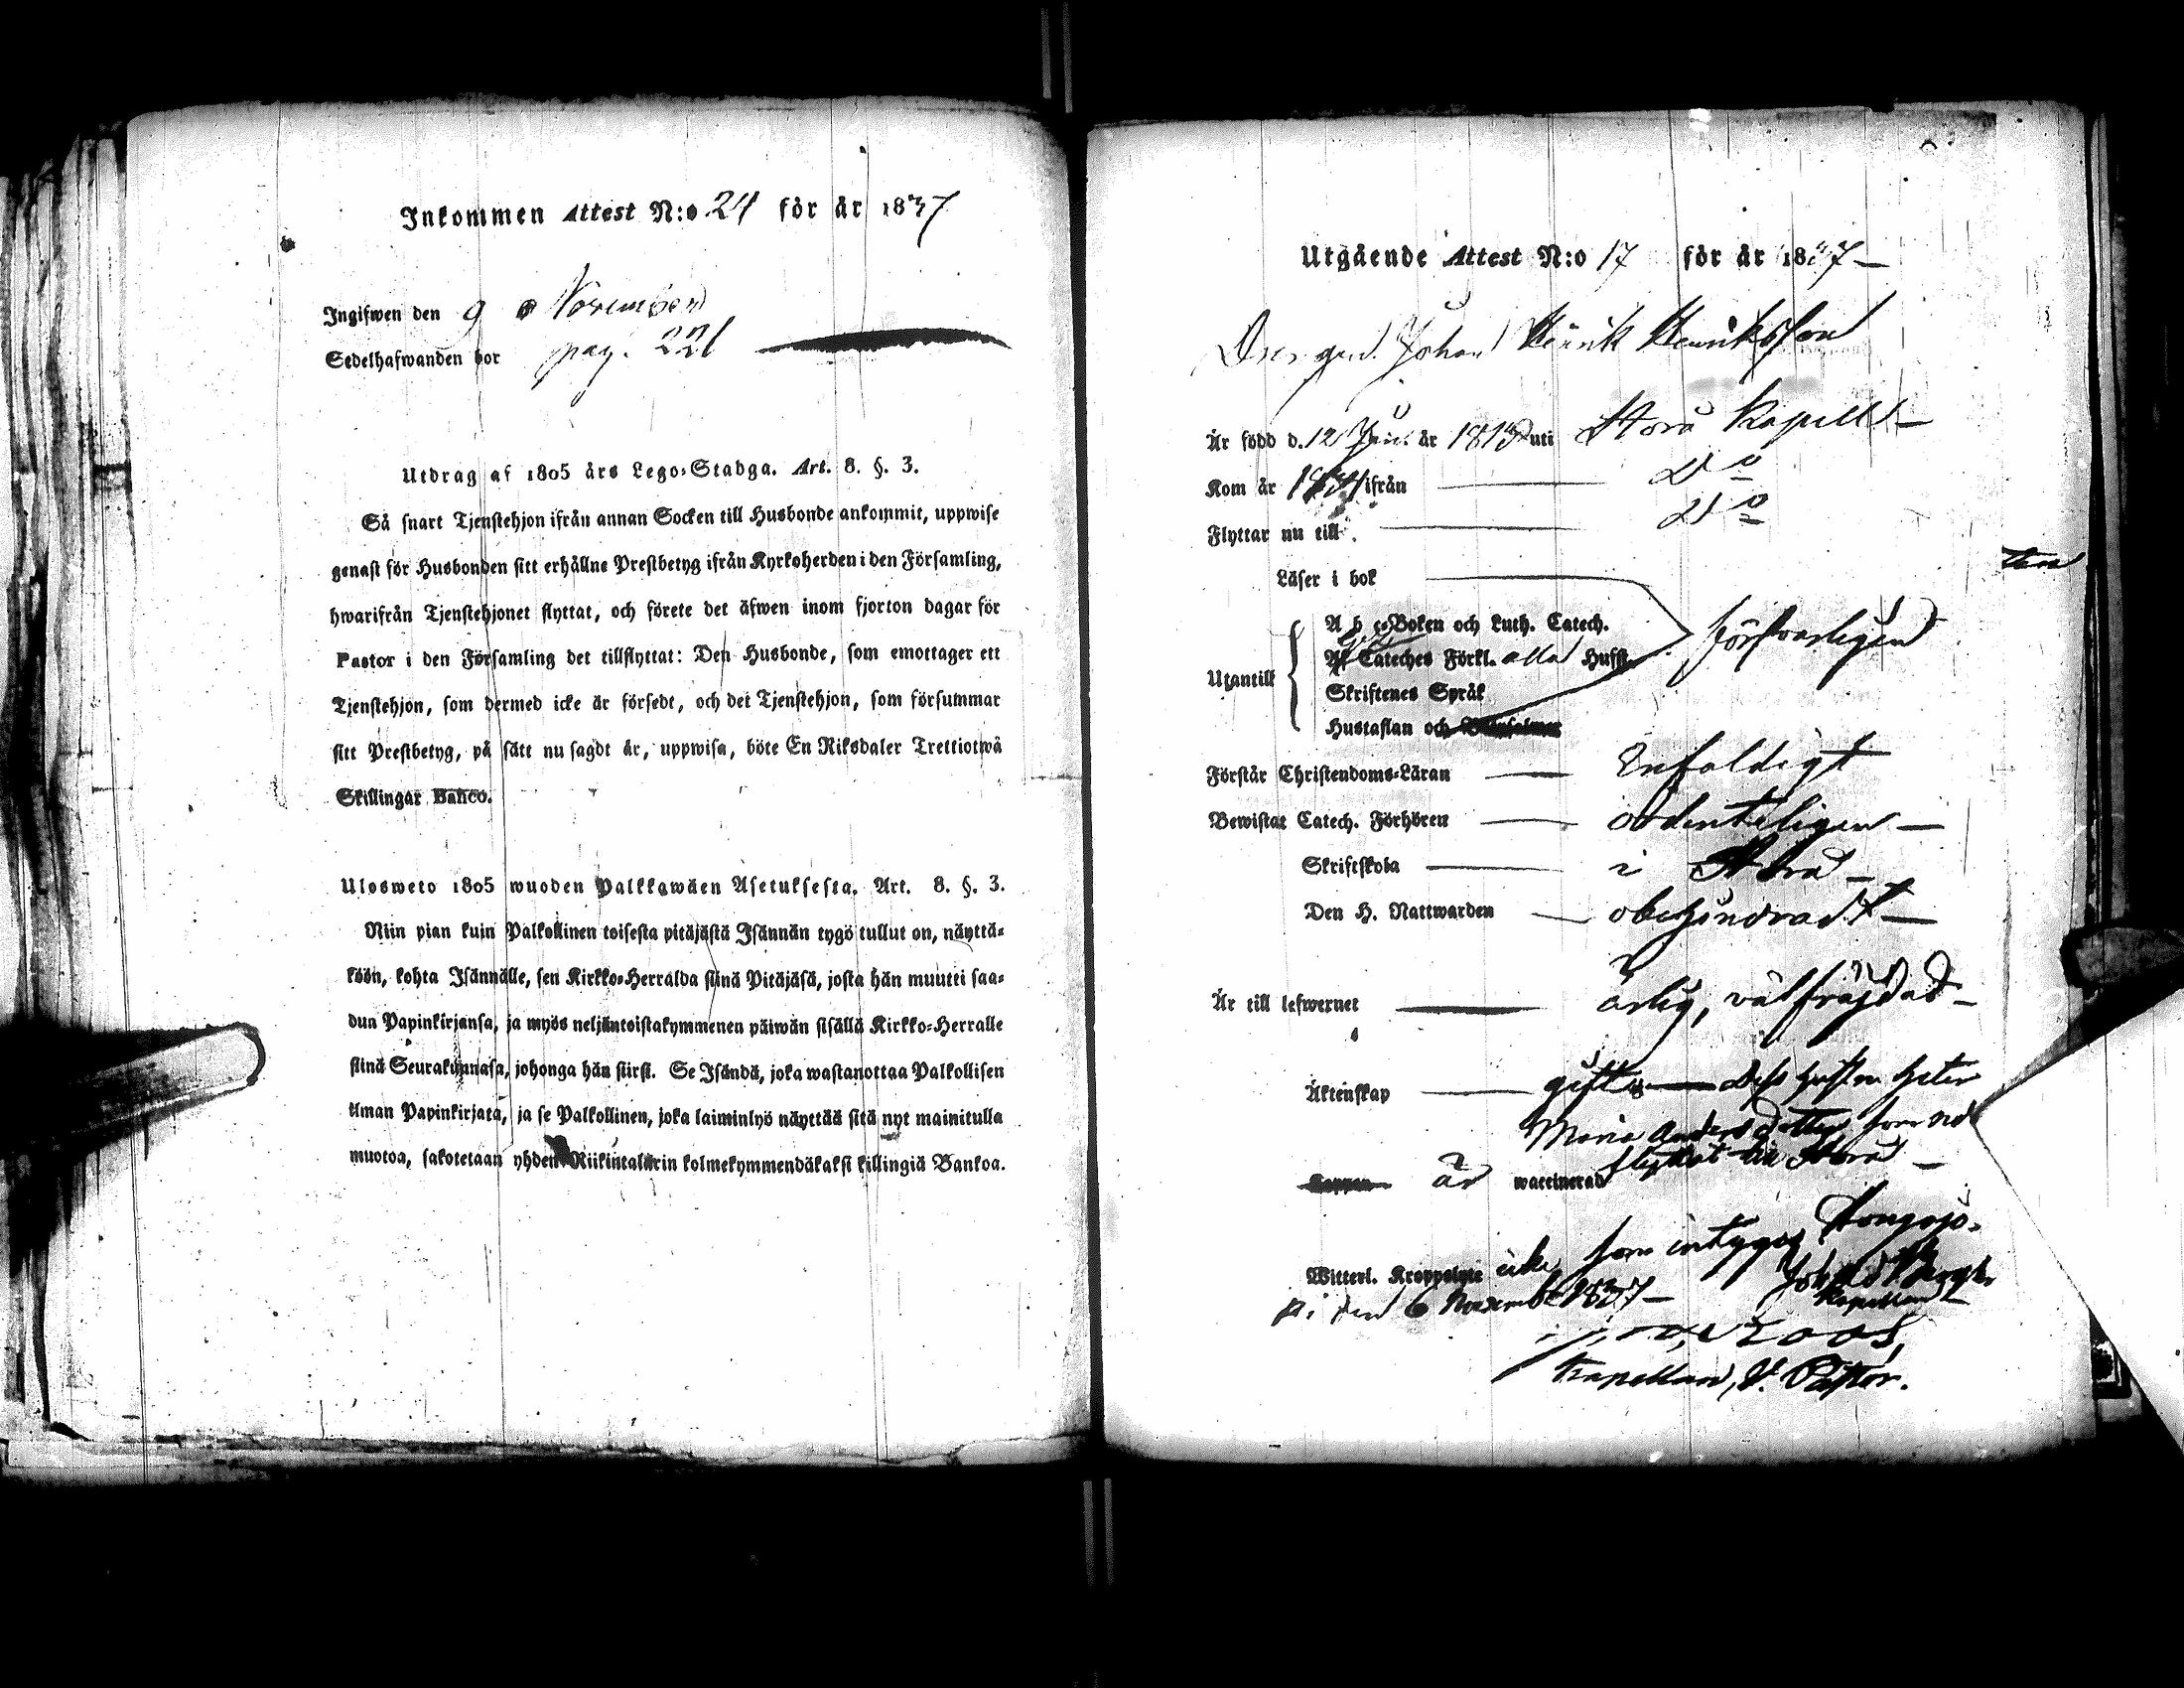 Inkommen Attest N:o 24 för år 1837
Ingifwen den 9 November
Sedelhafwanden bor pag. 221
Utdrag af 1805 års Lego-Stadga. Art. 8. §. 3.
Så snart Tjenstehjon ifrån annan Socken till Husbonde ankommit, uppwise
genast för Husbonden sitt erhållne Prestbetyg ifrån Kyrkoherden i den Församling,
hwarifrån Tjenstehjonet flyttat, och förete det äfwen inom fjorton dagar för
Pastor i den Församling det tillflyttat: Den Husbonde, som emottager ett
Tjenstehjon, som dermed icke är försedt, och det Tjenstehjon, som försummar
sitt Prestbetyg, på sätt nu sagdt är, uppwisa, böte En Riksdaler Trettiotwå
Skillingar Banco.
Ulosweto 1805 wuoden Palkkawäen Asetuksesta. Art. 8. §. 3.
Niin pian kuin Palkollinen toisesta pitäjästä Isännän tygö tullut on, näyttä-
köön, kohta Isännälle, sen Kirkko-Herralda siinä Pitäjäsä, josta hän muutti saa-
dun Papinkirjansa, ja myös neljäntoistakymmenen päiwän sisällä Kirkko-Herralle
siinä Seurakunnasa, johonga hän siirsi. Se Isändä, joka wastanottaa Palkollisen
ilman Papinkirjata, ja se Palkollinen, joka laiminlyö näyttää sitä nyt mainitulla
muotoa, sakotetaan yhden Riikintalarin kolmekymmendäkaksi killingiä Bankoa.
Utgående Attest N:o 17 för år 1837
Drengen Johan Henrik Henriksson
Är född d. 12 Jan. år 1813 uti Storå Kapell
Kom år ifrån Do
Flyttar nu till Do
Läser i bok
A b c-Boken och Luth. Catech. försvarligen
Utantill Cateches Förkl. alla Husst.
Skriftenes Språk
Hustaflan och
Förstår Christendoms-Läran Enfaldigt
Bewistat Catech. Förhören ordenteligen
Skriftskola i Storå
Den H. Nattwarden obehindradt
Är till lefwernet ärlig, välfräjdad
Äktenskap gift Dess hustru heter
Maria Andersdotter som nu
flyttat till Storå
är waccinerad
Witterl. Kroppslyte icke som intygas
den 6 November 1837
Kapellan
Kapellan, V. Pastor.